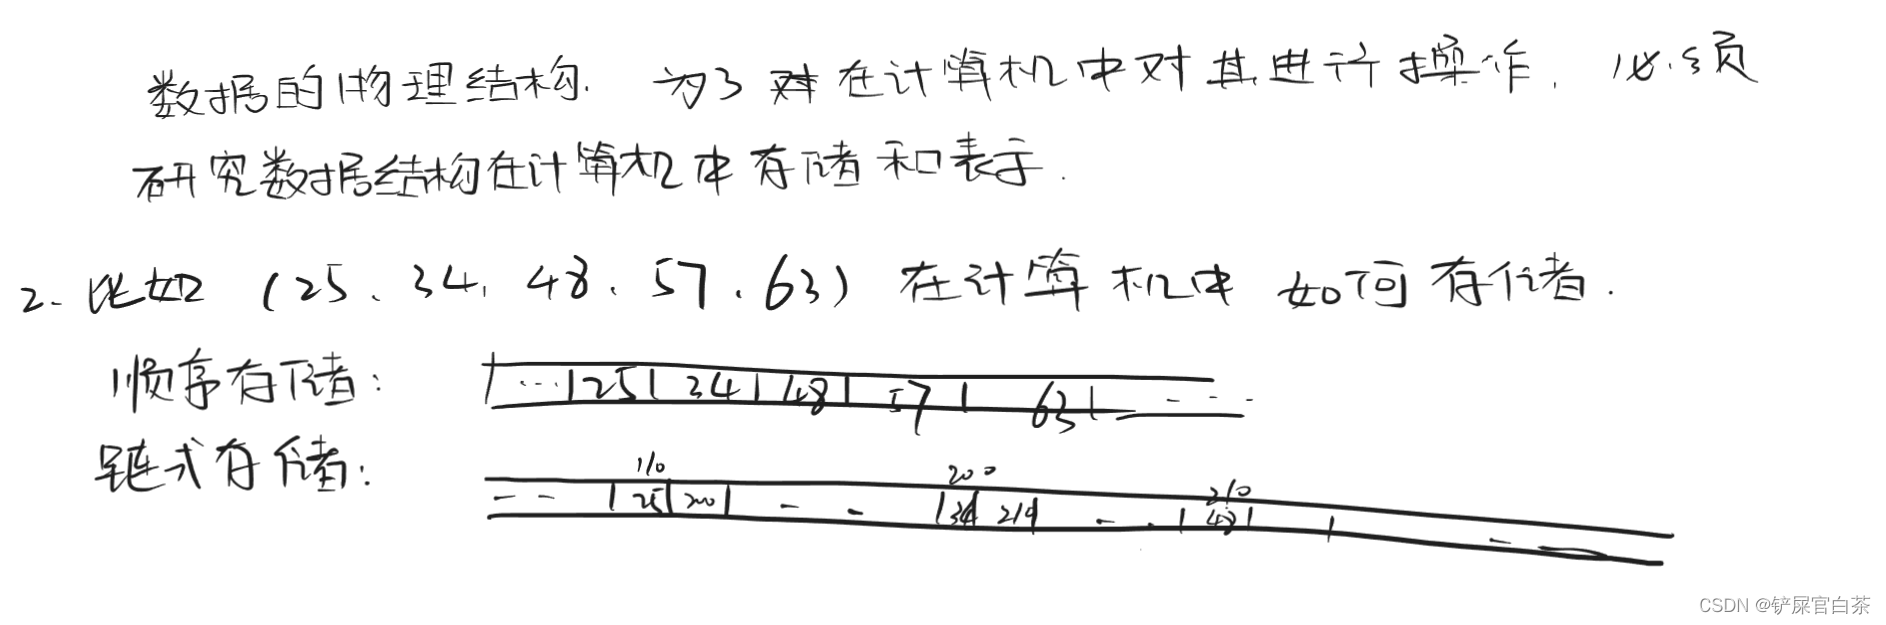 数据的物理结构. 为了 在计算机中对其进行操作. 必须
研究数据结构在计算机中存储和表示.
2. 比如 (25、34、48、57、63) 在计算机中 如何存储.
顺序存储: ... 25 34 48 57 63 ...
链式存储:
110 200 210
-- 25 200 -- 34 210 -- 48 --
CSDN @铲屎官白茶